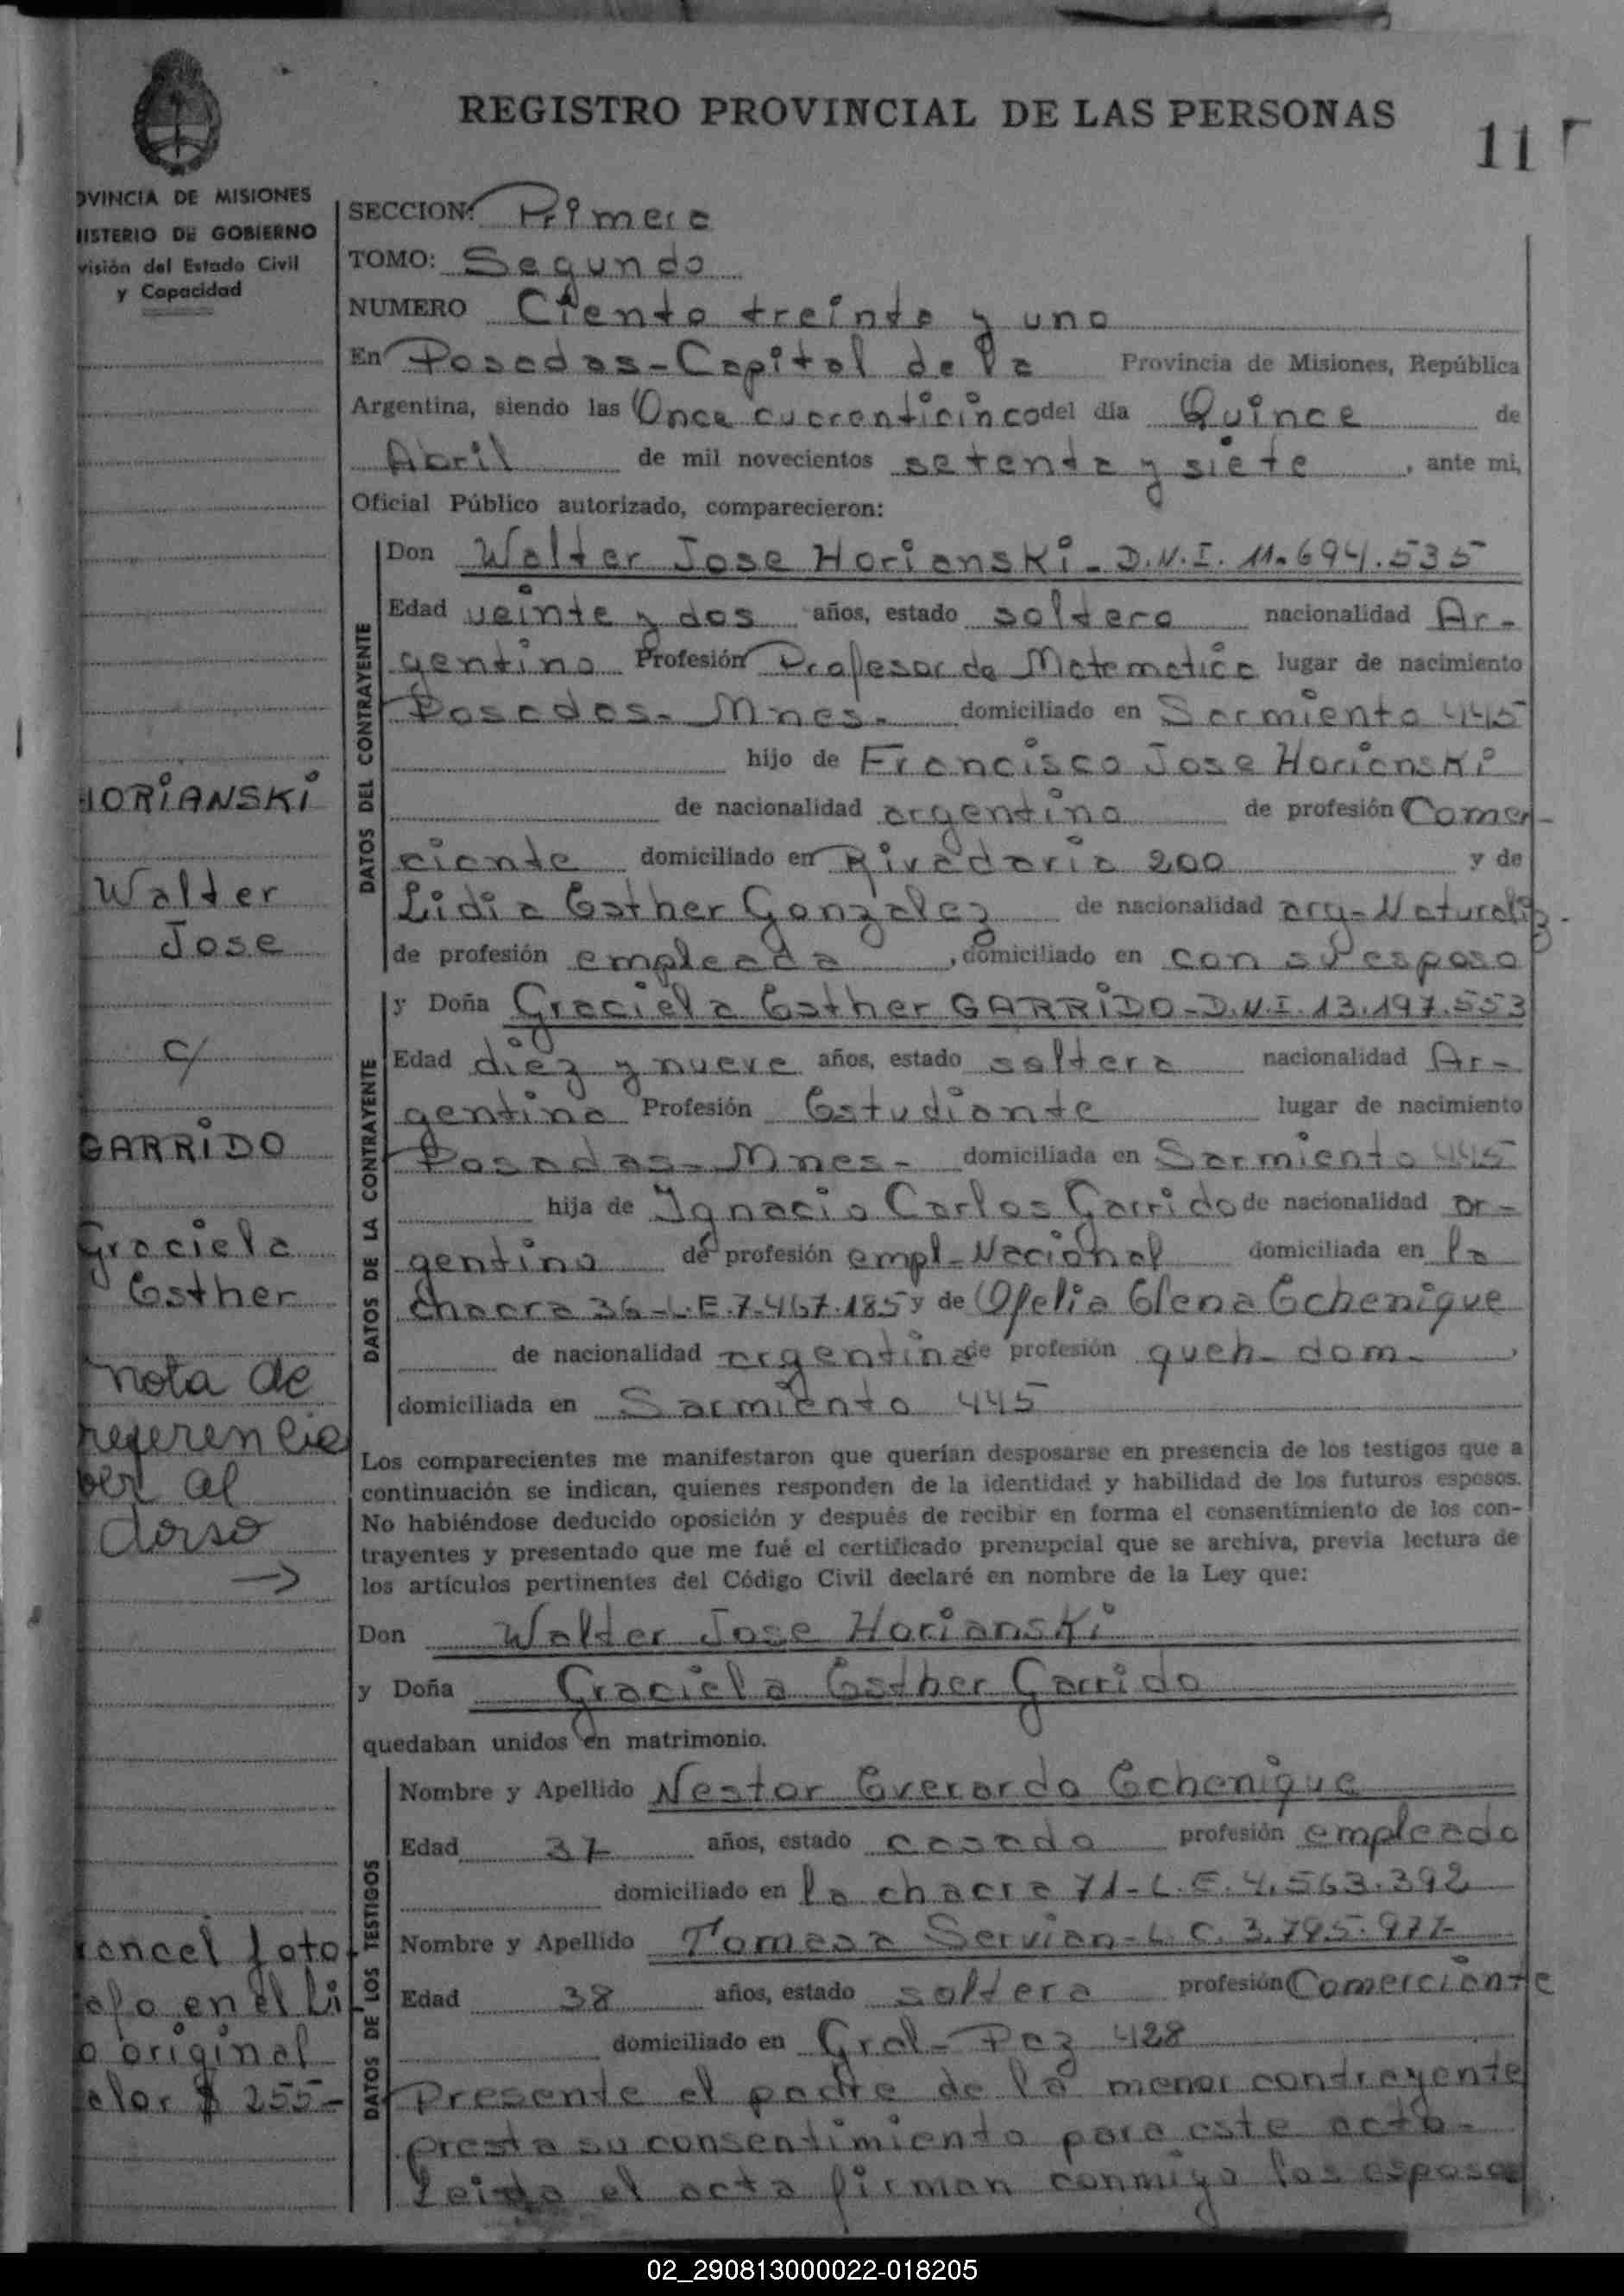 REGISTRO PROVINCIAL DE LAS PERSONAS
11
OVINCIA DE MISIONES
NISTERIO DE GOBIERNO
visión del Estado Civil
y Capacidad
SECCION: Primera
TOMO: Segundo
NUMERO Ciento treinta y uno
En Posadas-Capital de la Provincia de Misiones, República
Argentina, siendo las Once cuarenticinco del día Quince de
Abril de mil novecientos setenta y siete, ante mi,
Oficial Público autorizado, comparecieron:
DATOS DEL CONTRAYENTE
Don Walter Jose Horianski - D.N.I. 11.694.535
Edad veinte y dos años, estado soltero nacionalidad Ar-
gentino Profesión Profesor de Matematica lugar de nacimiento
Posadas - Mnes - domiciliado en Sarmiento 445
hijo de Francisco Jose Horianski
de nacionalidad argentino de profesión Comer-
ciante domiciliado en Rivadavia 200 y de
Lidia Esther Gonzalez de nacionalidad arg-Naturaliz.
de profesión empleada, domiciliado en con su esposo
DATOS DE LA CONTRAYENTE
y Doña Graciela Esther GARRIDO - D.N.I. 13.197.553
Edad diez y nueve años, estado soltera nacionalidad Ar-
gentina Profesión Estudiante lugar de nacimiento
Posadas - Mnes - domiciliada en Sarmiento 445
hija de Ignacio Carlos Garrido de nacionalidad ar-
gentino de profesión empl-Nacional domiciliada en la
chacra 36 - L.E. 7.467.185 y de Ofelia Elena Echenique
de nacionalidad argentina de profesión queh - dom -,
domiciliada en Sarmiento 445
Los comparecientes me manifestaron que querían desposarse en presencia de los testigos que a
continuación se indican, quienes responden de la identidad y habilidad de los futuros esposos.
No habiéndose deducido oposición y después de recibir en forma el consentimiento de los con-
trayentes y presentado que me fué el certificado prenupcial que se archiva, previa lectura de
los artículos pertinentes del Código Civil declaré en nombre de la Ley que:
Don Walter Jose Horianski
y Doña Graciela Esther Garrido
quedaban unidos en matrimonio.
DATOS DE LOS TESTIGOS
Nombre y Apellido Nestor Everardo Echenique
Edad 37 años, estado casado profesión empleado
domiciliado en la chacra 71 - L.E. 4.563.392
Nombre y Apellido Tomasa Servian - L.C. 3.795.977
Edad 38 años, estado soltera profesión Comerciante
domiciliado en Gral - Paz 428
Presente el padre de la menor contrayente
presta su consentimiento para este acto -
Leida el acta firman conmigo los esposos
HORIANSKI
Walter
Jose
c/
GARRIDO
Graciela
Esther
nota de
referencia
ver al
dorso
→
foto
en el Li
original
$ 255-
02_290813000022-018205